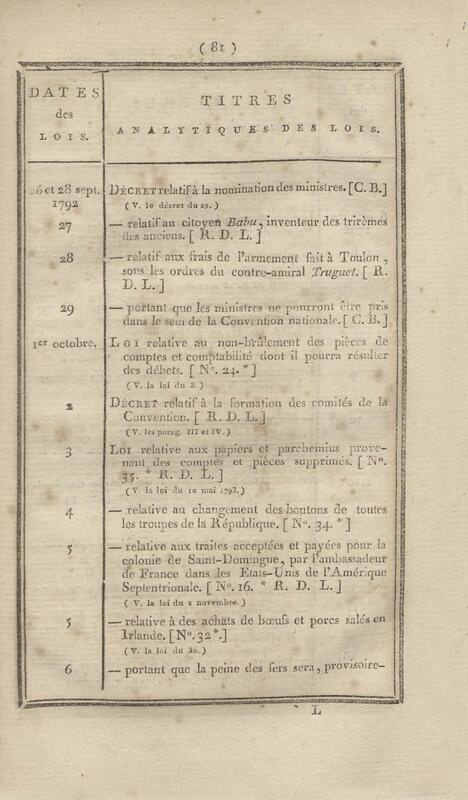 ( 81 )
DATES
des
LOIS.
TITRES
ANALYTIQUES DES LOIS.
26 et 28 sept.
1792
DÉCRET relatif à la nomination des ministres. [C. B.]
( V. le décret du 29. )
27
— relatif au citoyen Babu, inventeur des trirèmes
des anciens. [ R. D. L. ]
28
— relatif aux frais de l'armement fait à Toulon,
sous les ordres du contre-amiral Truguet. [ R.
D. L. ]
29
— portant que les ministres ne pourront être pris
dans le sein de la Convention nationale. [ C. B. ]
1er octobre.
LOI relative au non-brûlement des pièces de
comptes et comptabilité dont il pourra résulter
des débets. [ No. 24. * ]
( V. la loi du 3. )
2
DÉCRET relatif à la formation des comités de la
Convention. [ R. D. L. ]
( V. les parag. III et IV. )
3
LOI relative aux papiers et parchemins prove-
nant des comptes et pièces supprimés. [ No.
35. * R. D. L. ]
( V. la loi du 10 mai 1793. )
4
— relative au changement des boutons de toutes
les troupes de la République. [ No. 34. * ]
5
— relative aux traites acceptées et payées pour la
colonie de Saint-Domingue, par l'ambassadeur
de France dans les États-Unis de l'Amérique
Septentrionale. [ No. 16. * R. D. L. ]
( V. la loi du 2 novembre. )
5
— relative à des achats de bœufs et porcs salés en
Irlande. [ No. 32 *. ]
( V. la loi du 30. )
6
— portant que la peine des fers sera, provisoire-
L